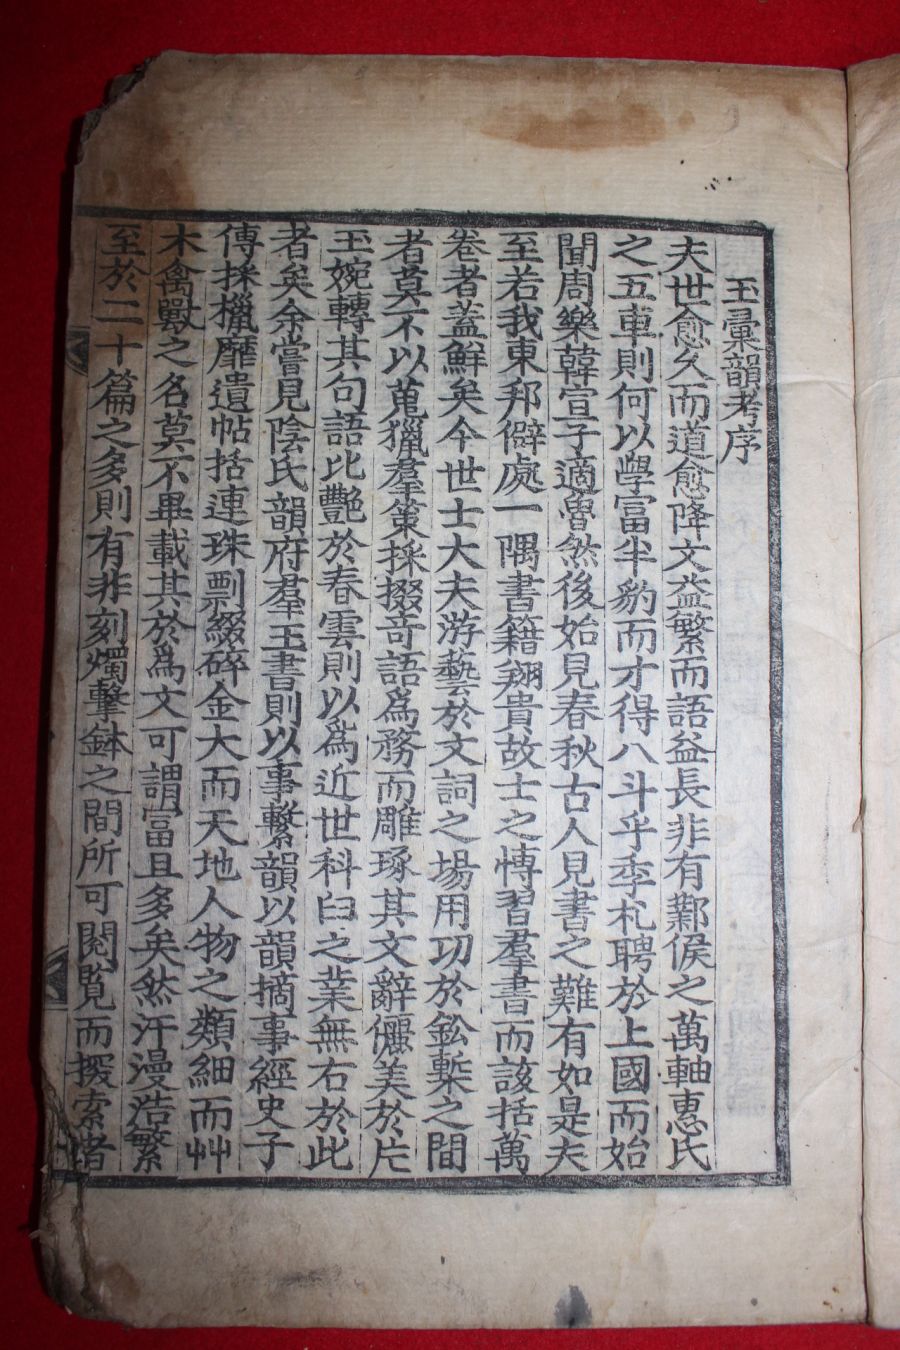 玉彙韻考序
夫世愈久而道愈降文益繁而語益長非有鄴侯之萬軸惠氏
之五車則何以學富半豹而才得八斗乎季札聘於上國而始
聞周樂韓宣子適魯然後始見春秋古人見書之難有如是夫
至若我東邦僻處一隅書籍翔貴故士之愽習羣書而該括萬
卷者盖鮮矣今世士大夫游藝於文詞之場用功於鈆槧之間
者莫不以蒐獵羣策採掇奇語爲務而雕琢其文辭儷美於片
玉婉轉其句語比艷於春雲則以爲近世科臼之業無右於此
者矣余嘗見陰氏韻府羣玉書則以事繫韻以韻摘事經史子
傳採櫵靡遺帖括連珠剽綴碎金大而天地人物之類細而艸
木禽獸之名莫不畢載其於爲文可謂富且多矣然汗漫浩繁
至於二十篇之多則有非刻燭擊鉢之間所可閱覧而探索者